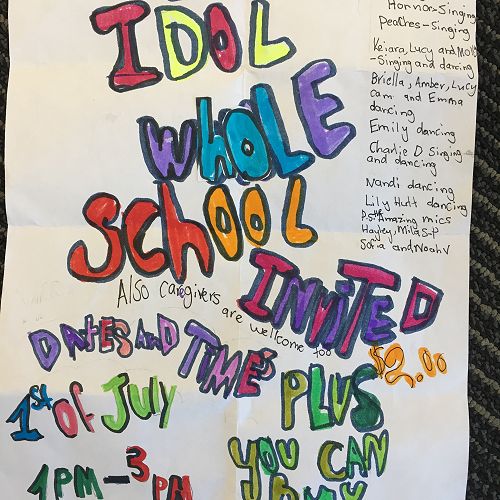 IDOL
WHOLE
SCHOOL
INVITED
Also caregivers
are welcome too
DATES AND TIME'S
1st OF JULY
1PM-3PM
$2.00
PLUS
YOU CAN
Honnor-Singing
peaches-Singing
Keiara, Lucy and
-Singing and dancing
Briella, Amber, Lucy
cam and Emma
dancing
Emily dancing
Charlie D Singing
and dancing
Nandi dancing
Lily Hutt dancing
P.S the Amazing mics
Hayley, Mila S-P
Soria and Noah V